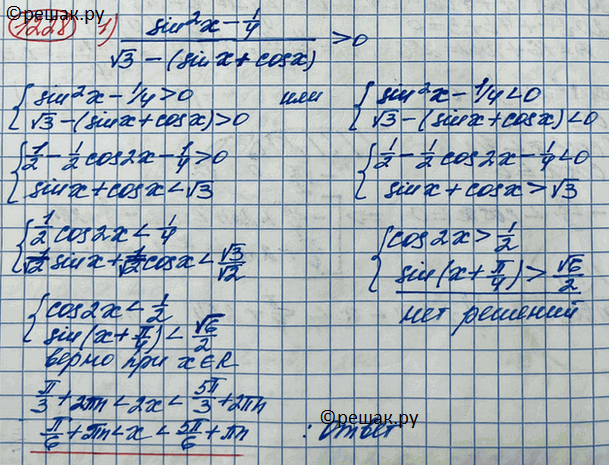 ©решак.ру
1228 1) (sin²x − 1/4)/(√3 − (sinx + cosx)) > 0
{ sin²x − 1/4 > 0
√3 − (sinx + cosx) > 0
или
{ sin²x − 1/4 < 0
√3 − (sinx + cosx) < 0
{ 1/2 − 1/2 cos2x − 1/4 > 0
sinx + cosx < √3
{ 1/2 − 1/2 cos2x − 1/4 < 0
sinx + cosx > √3
{ 1/2 cos2x < 1/4
1/√2 sinx + 1/√2 cosx < √3/√2
{ cos2x > 1/2
sin(x + π/4) > √6/2
нет решений
{ cos2x < 1/2
sin(x + π/4) < √6/2
верно при x∈R
π/3 + 2πn < 2x < 5π/3 + 2πn
π/6 + πn < x < 5π/6 + πn : Ответ
©решак.ру